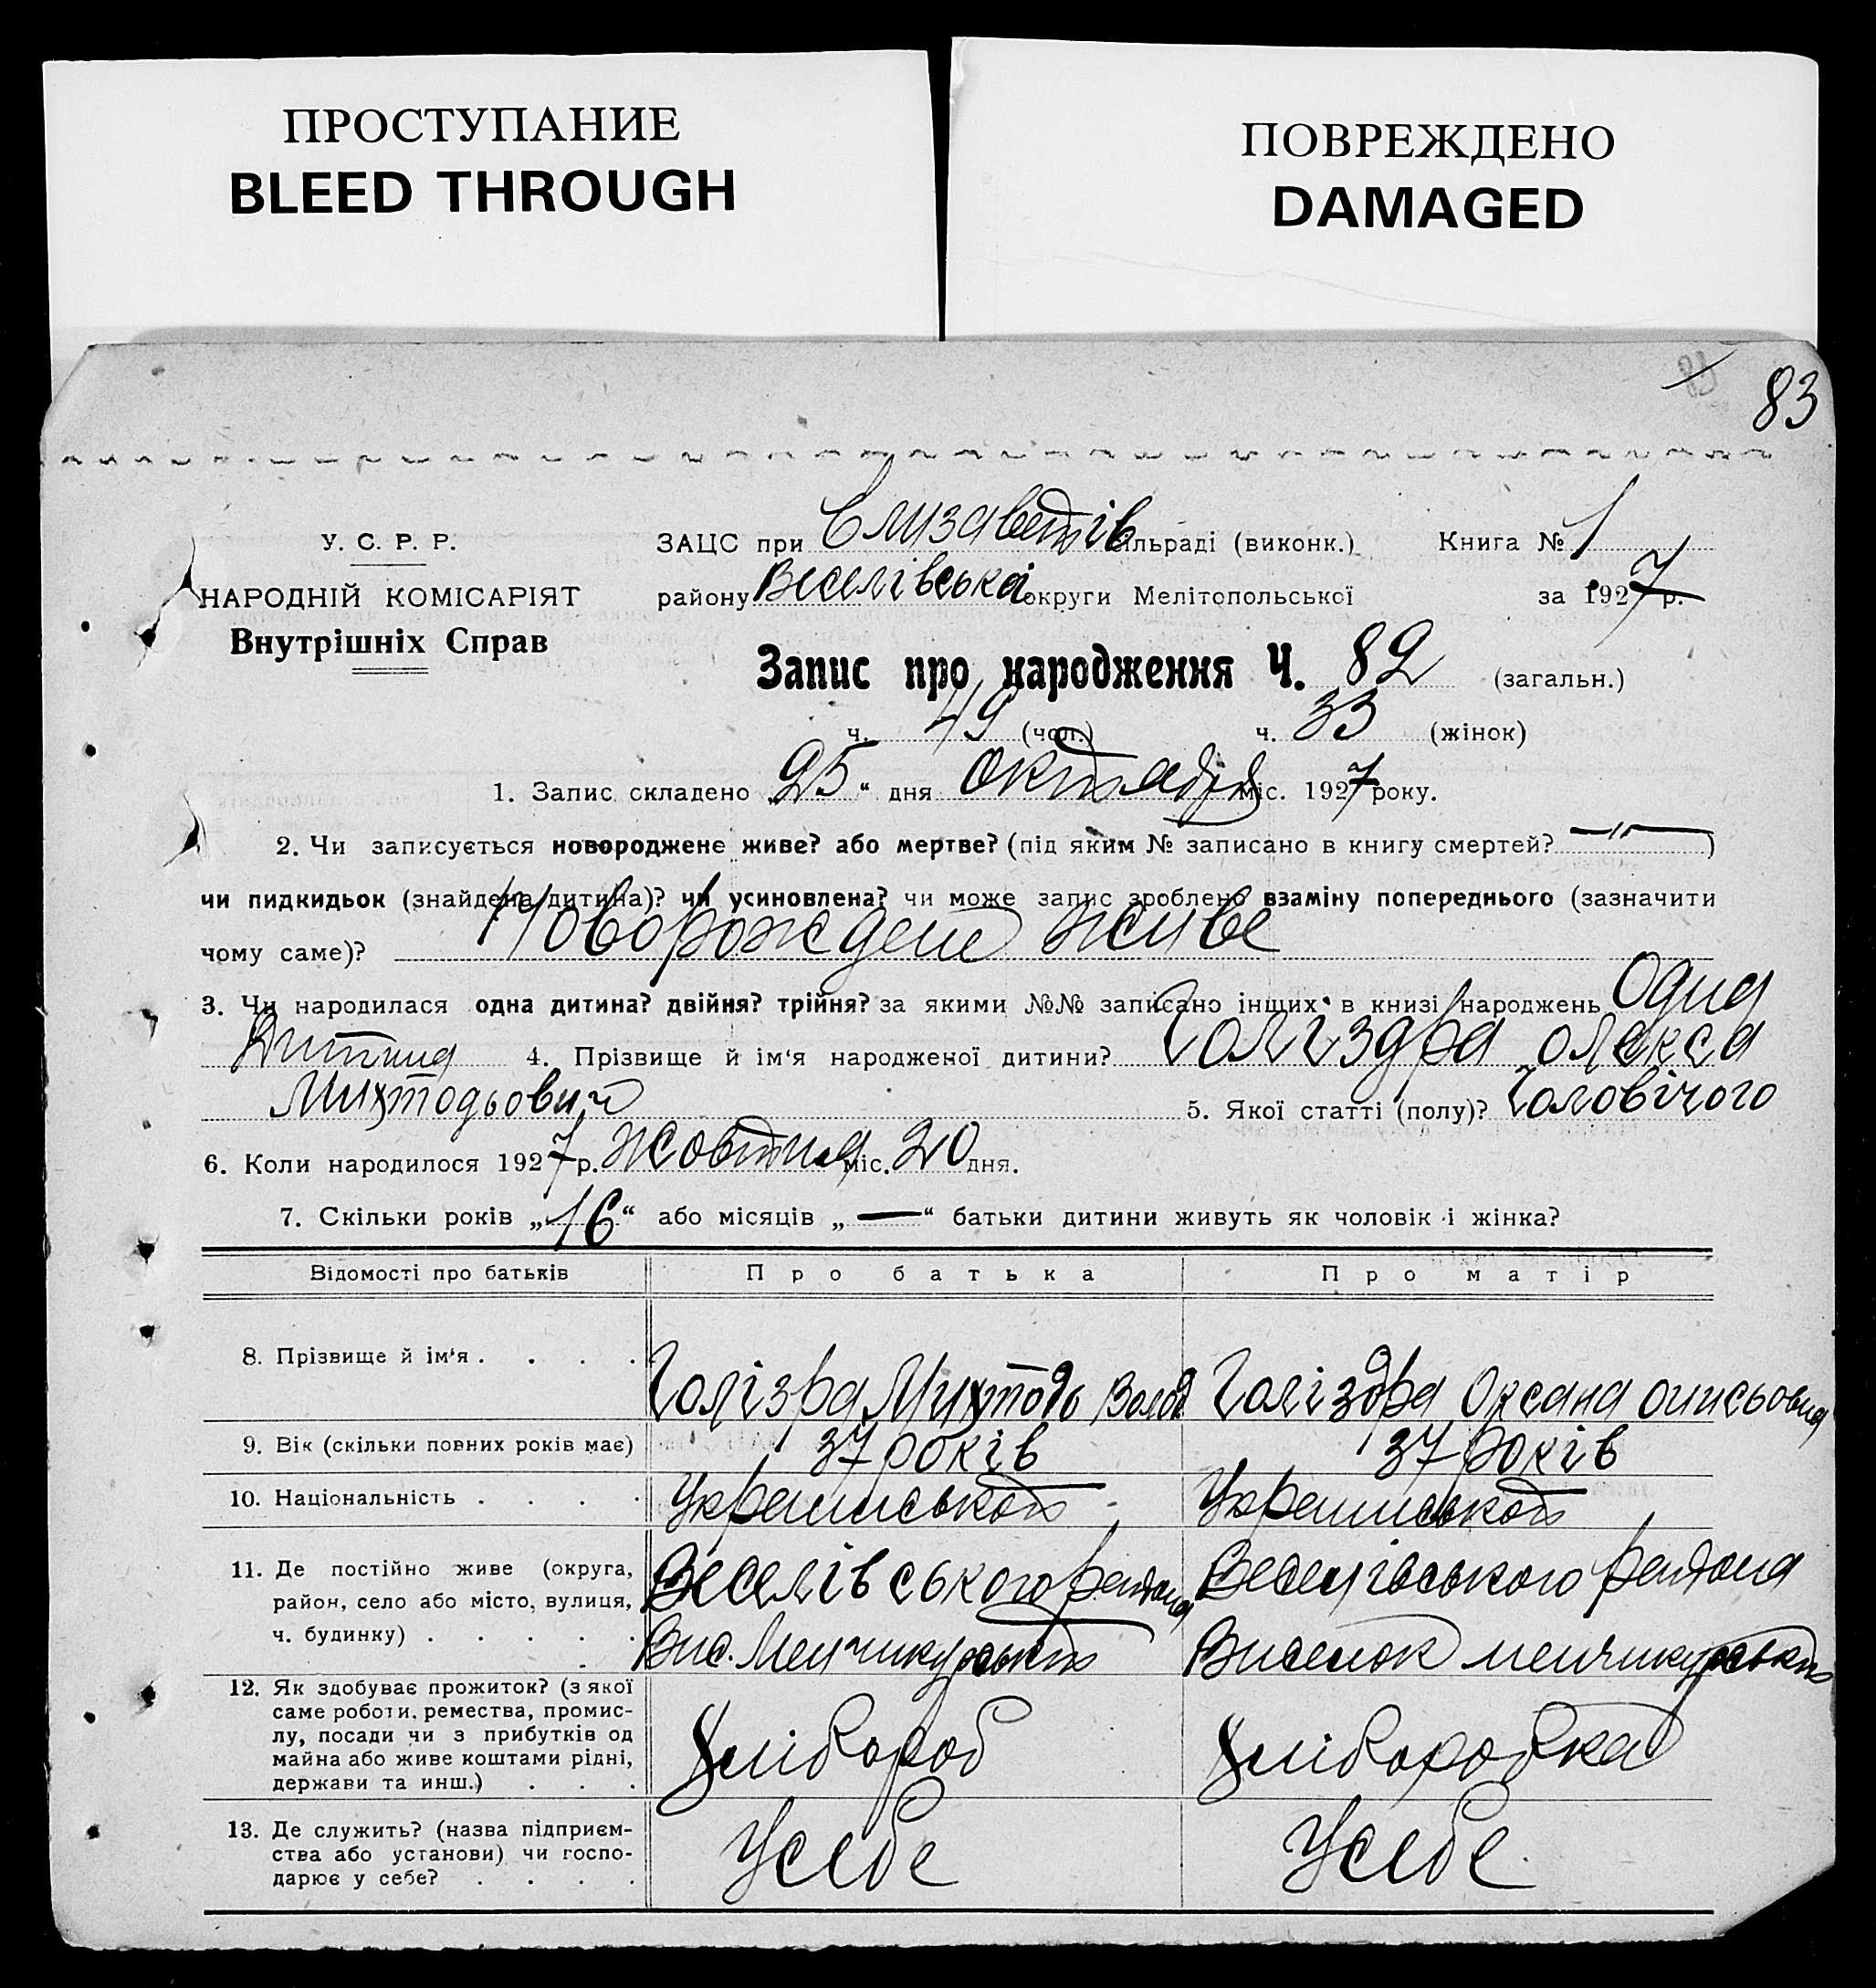 ПРОСТУПАНИЕ
BLEED THROUGH
ПОВРЕЖДЕНО
DAMAGED
83
У. С. Р. Р.
НАРОДНІЙ КОМІСАРІЯТ
Внутрішніх Справ
ЗАЦС при Єлизаветів сільраді (виконк.) Книга № 1
району Веселівській округи Мелітопольської за 1927 р.
Запис про народження Ч. 82 (загальн.)
ч. 49 (чол.) ч. 33 (жінок)
1. Запис складено „25“ дня октября міс. 1927 року.
2. Чи записується новороджене живе? або мертве? (під яким № записано в книгу смертей? —"— )
чи пидкидьок (знайдена дитина)? чи усиновлена? чи може запис зроблено взаміну попереднього (зазначити
чому саме)? Новорождене живе
3. Чи народилася одна дитина? двійня? трійня? за якими №№ записано інших в книзі народжень Одна
дитина 4. Прізвище й ім'я народженої дитини? Голіздра олекса
Михтодьович 5. Якої статті (полу)? Чоловічого
6. Коли народилося 1927 р. жовтня міс. 20 дня.
7. Скільки років „16“ або місяців „—“ батьки дитини живуть як чоловік і жінка?
Відомості про батьків Про батька Про матір
8. Прізвище й ім'я . . . . Голізра Михтодь Волод Голіздра Оксана
9. Вік (скільки повних років має) 37 років 37 років
10. Національність . . . .
11. Де постійно живе (округа, Веселівського района Веселівського района
район, село або місто, вулиця,
ч. будинку) . . . . . Вис. Менчикурський Виселок менчикурський
12. Як здобуває прожиток? (з якої
саме роботи, ремества, промис-
лу, посади чи з прибутків од Хлібороб Хліборобка
майна або живе коштами рідні,
держави та инш.) . . .
13. Де служить? (назва підприєм-
ства або установи) чи госпо- Усебе Усебе
дарює у себе? . . . .